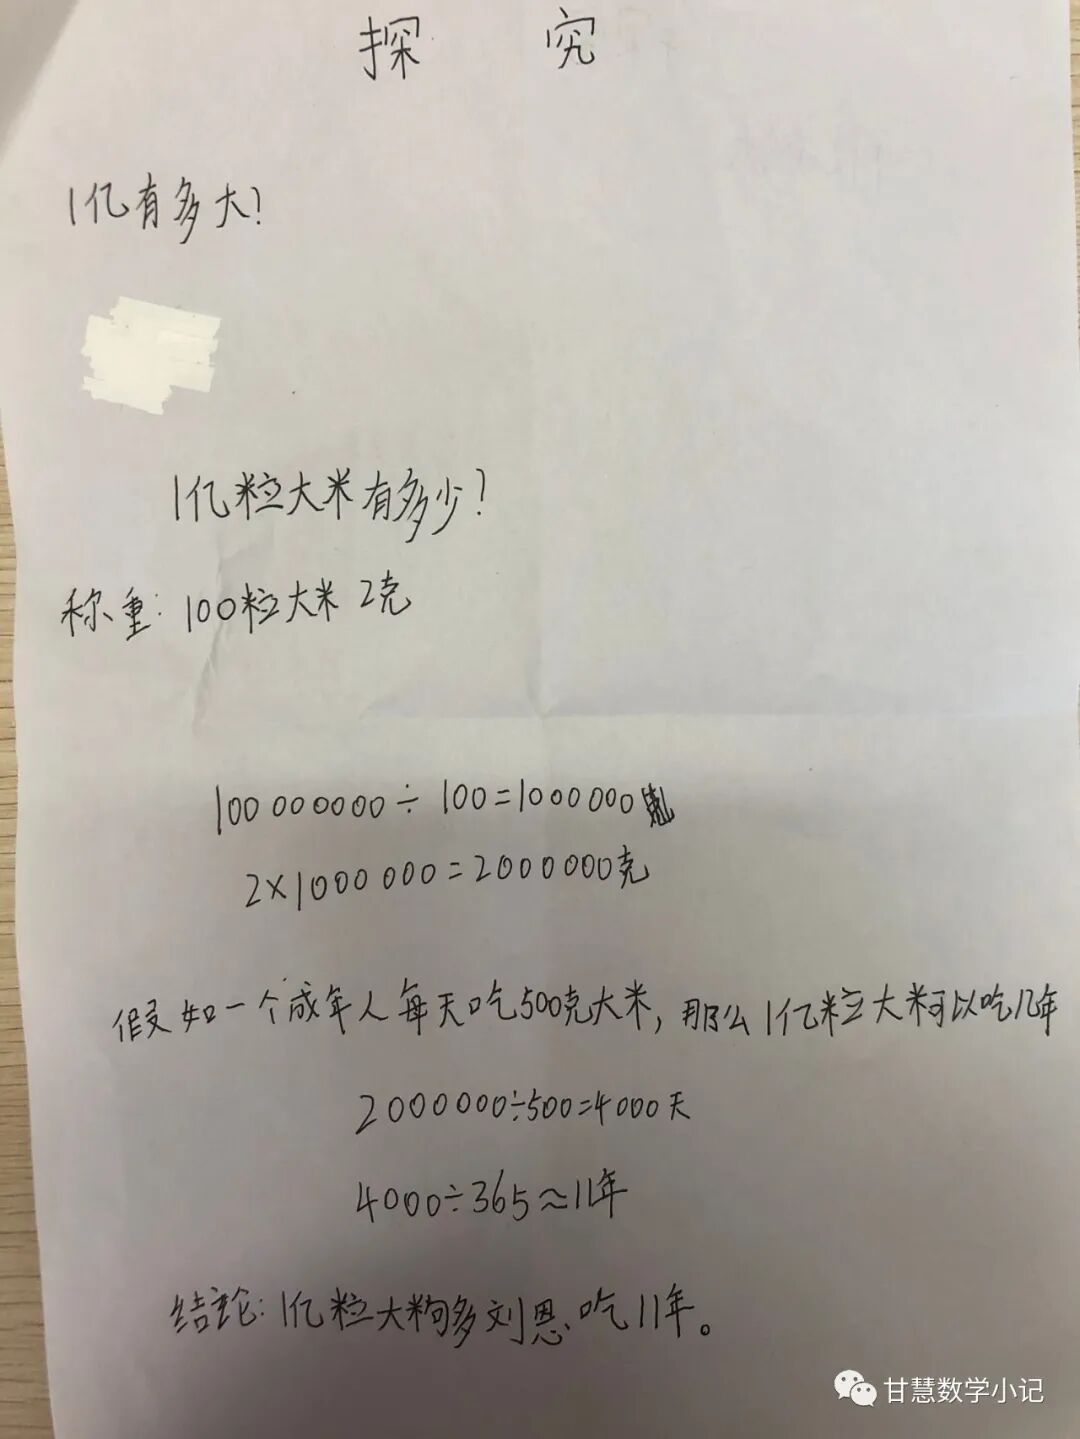 探 究
1亿有多大?
1亿粒大米有多少?
称重: 100粒大米 2克
100 000000÷100=1000000
2×1000000=2000000克
假如一个成年人每天吃500克大米, 那么1亿粒大米可以吃几年
2000000÷500=4000天
4000÷365≈11年
结论: 1亿粒大米够多刘恩吃11年。
甘慧数学小记